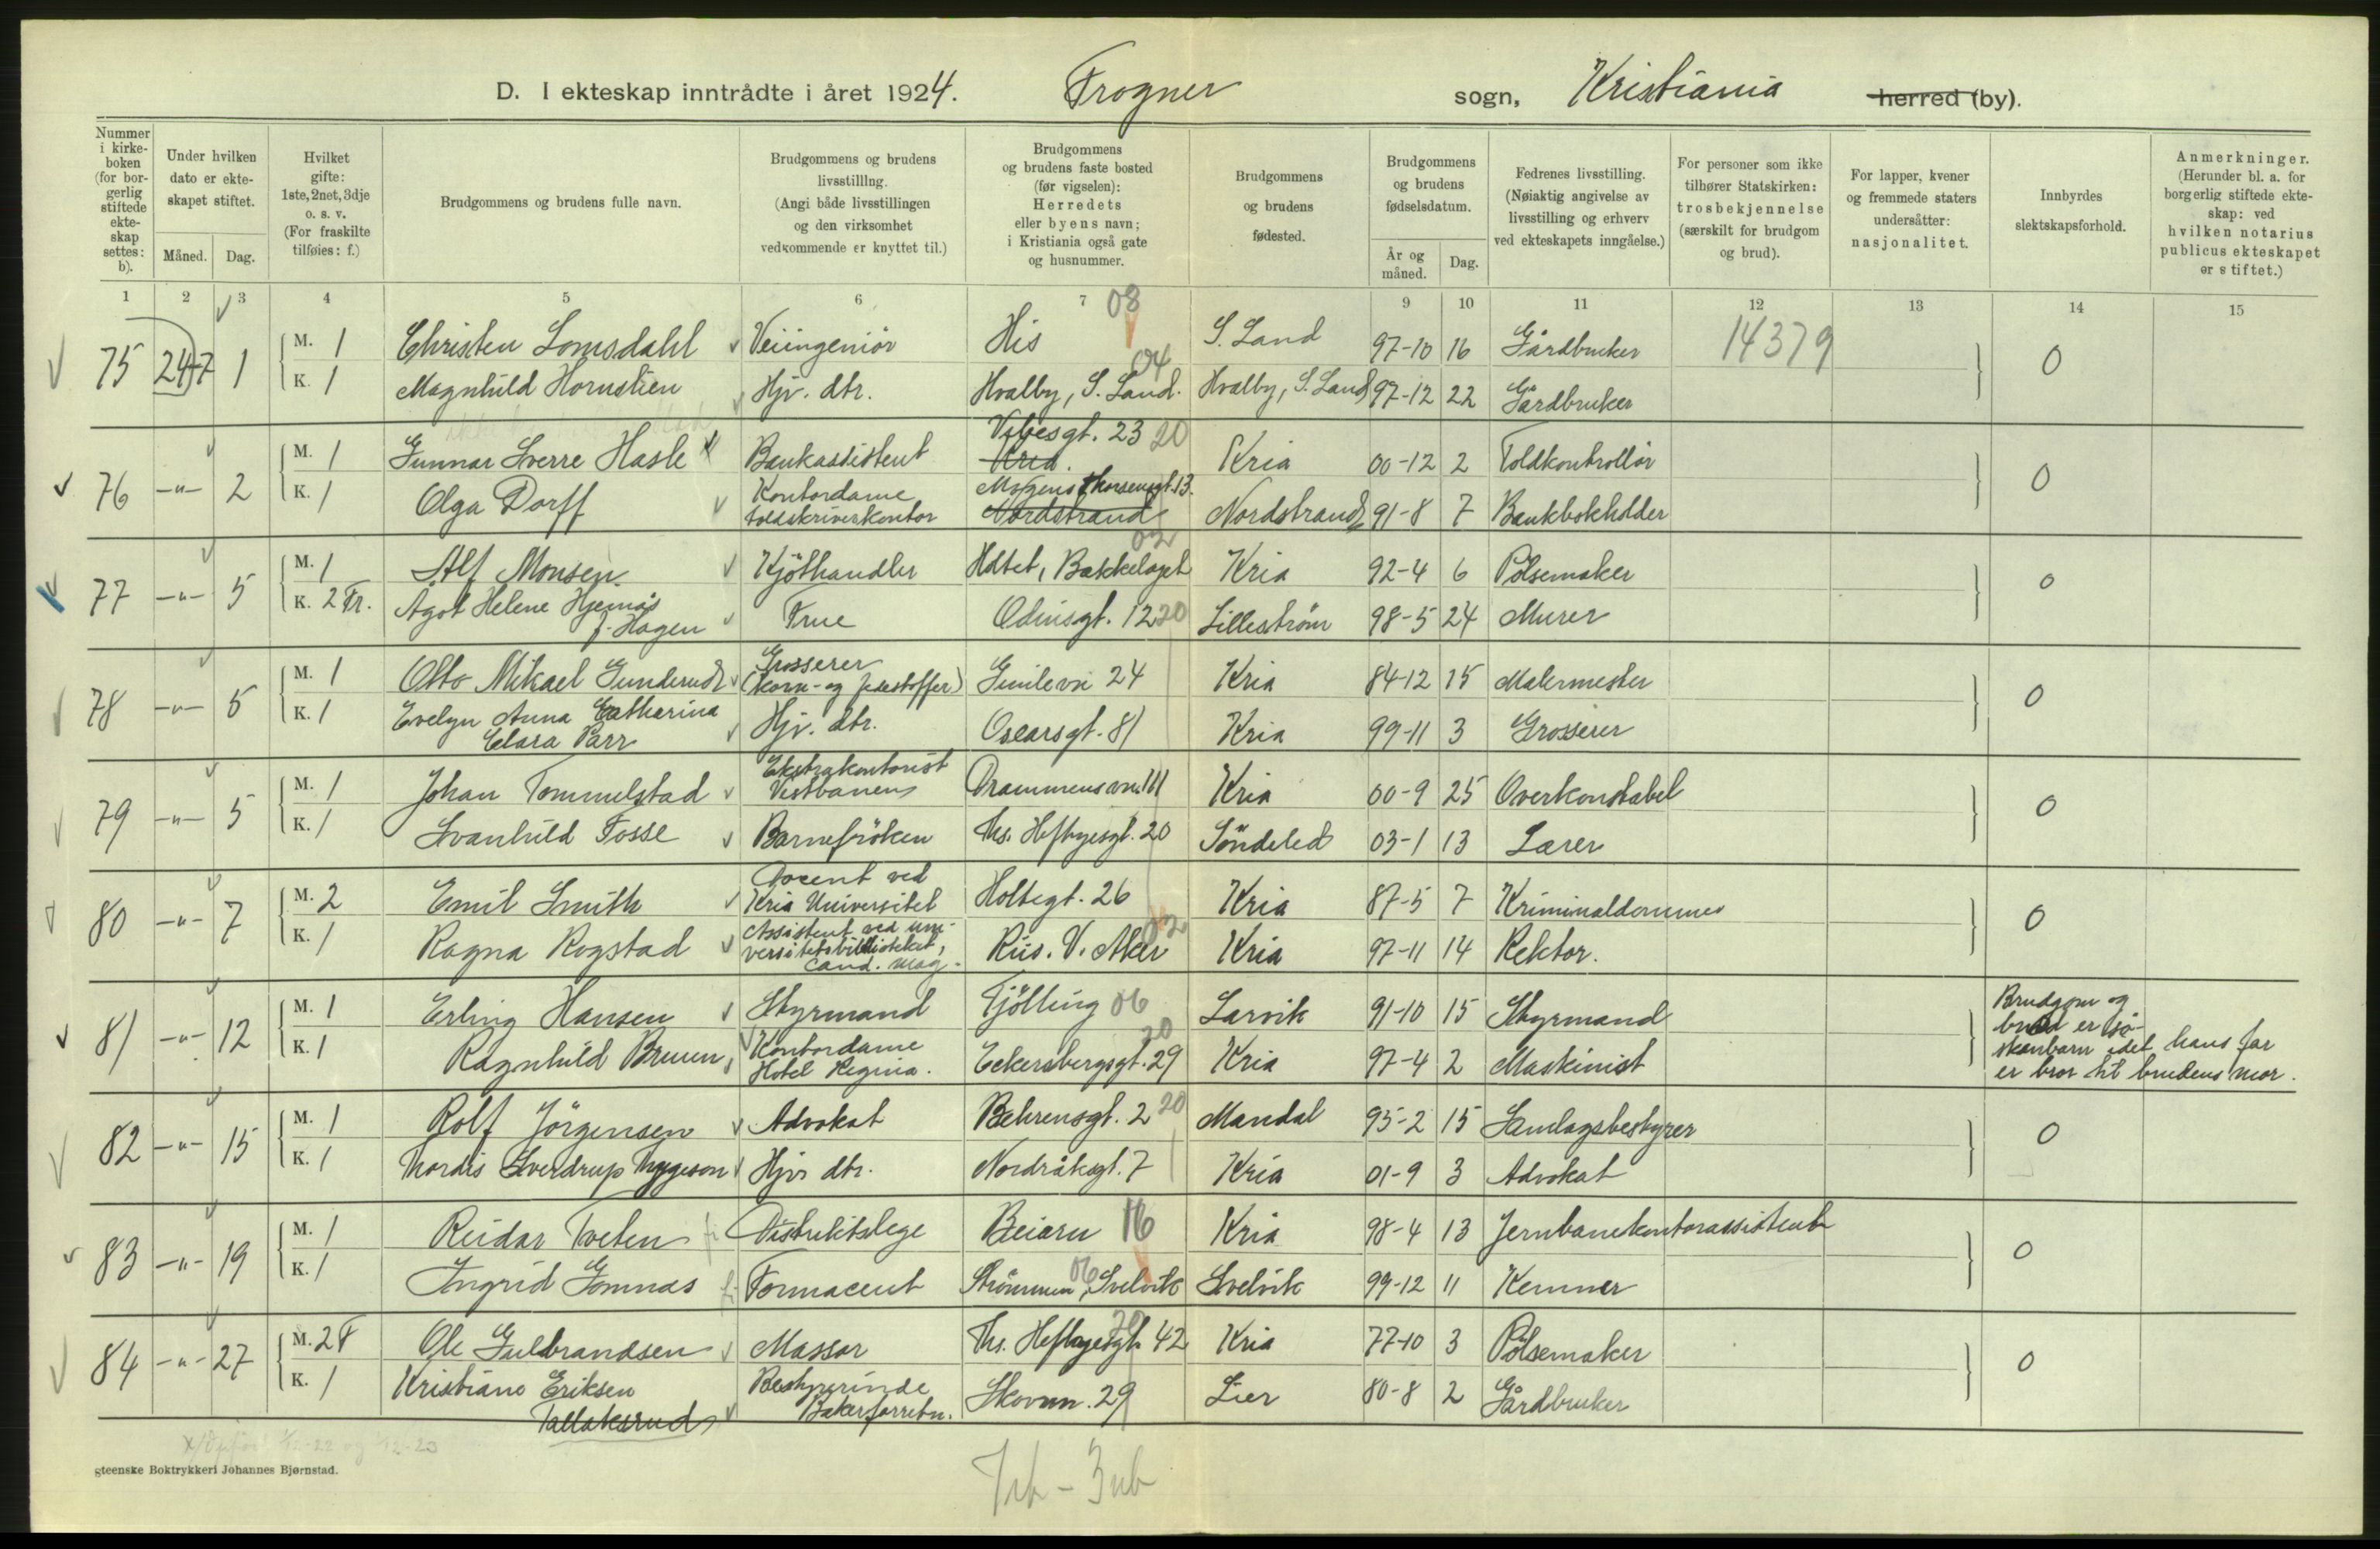 D. I ekteskap inntrådte i året 1924. Frogner sogn, Kristiania herred (by).
Nummer i kirke-boken (for bor-gerlig stiftede ekte-skap settes: b).
Under hvilken dato er ekte-skapet stiftet.
Måned. Dag.
Hvilket gifte: 1ste, 2net, 3dje o. s. v. (For fraskilte tilføies: f.)
Brudgommens og brudens fulle navn.
Brudgommens og brudens livsstilllng. (Angi både livsstillingen og den virksomhet vedkommende er knyttet til.)
Brudgommens og brudens faste bosted (før vigselen): Herredets eller byens navn; i Kristiania også gate og husnummer.
Brudgommens og brudens fødested.
Brudgommens og brudens fødselsdatum.
År og måned. Dag.
Fedrenes livsstilling. (Nøiaktig angivelse av livsstilling og erhverv ved ekteskapets inngåelse.)
For personer som ikke tilhører Statskirken: trosbekjennelse (særskilt for brudgom og brud).
For lapper, kvener og fremmede staters undersåtter: nasjonalitet.
Innbyrdes slektskapsforhold.
Anmerkninger. (Herunder bl. a. for borgerlig stiftede ekte-skap: ved hvilken notarius publicus ekteskapet er stiftet.)
1 2 3 4 5 6 7 08 9 10 11 12 13 14 15
75 24-7 1 M. 1 Christen Lomsdahl Veiingeniör His S. Land 97-10 16 Gårdbruker 14379 0
K. 1 Magnhild Hornslien Hjv. dtr. Hvalby, S. Land. 04 Hvalby, S. Land 97-12 22 Gårdbruker
76 -"- 2 M. 1 Gunnar Sverre Hasle Bankassistent Vibesgt. 23 20 Kria. Kria 00-12 2 Toldkontrollör 0
K. 1 Olga Dorff Kontordame toldskriverkontor Mogens Thorsensgt. 13. Nordstrand Nordstrand 91-8 7 Bankbokholder
77 -"- 5 M. 1 Alf Monsen Kjöthandler Holtet, Bækkelaget 02 Kria 92-4 6 Pölsemaker 0
K. 2 Fr. Agot Helene Hjemås f. Hagen Frue Odinsgt. 12 20 Lilleström 98-5 24 Murer
78 -"- 5 M. 1 Otto Mikael Gunderud Grosserer (korn- og foderstoffer) 24 Kria 84-12 15 Malermester 0
K. 1 Evelyn Anna Catharina Clara Parr Hjv. dtr. Oscarsgt. 81 Kria 99-11 3 Grosserer
79 -"- 5 M. 1 Johan Tommelstad Ekstrakontorist Vestbanen Drammensvn. 111 Kria 00-9 25 Overkonstabel 0
K. 1 Svanhild Fosse Barnefröken Ths. Heftyesgt. 20 Söndeled 03-1 13 Lærer
80 -"- 7 M. 2 Emil Smith Docent ved Kria Universitet Holtegt. 26 Kria 87-5 7 Kriminaldommer 0
K. 1 Ragna Rogstad Assistent ved uni-versitetsbiblioteket, cand. mag. Riis. V. Aker 02 Kria 97-11 14 Rektor.
81 -"- 12 M. 1 Erling Hansen Styrmand Tjölling 06 Larvik 91-10 15 Styrmand Brudgom og brud er sö-skenbarn idet hans far er bror til brudens mor.
K. 1 Ragnhild Bruun Kontordame Hotel Regina. Eckersbergsgt. 29 20 Kria 97-4 2 Maskinist
82 -"- 15 M. 1 Rolf Jörgensen Advokat Behrensgt. 2 20 Mandal 95-2 15 Samlagsbestyrer 0
K. 1 Thordis Sverdrup Thygeson Hjv. dtr. Nordråksgt. 7 Kria 01-9 3 Advokat
83 -"- 19 M. 1 Reidar Tveten Distriktslege Beiarn 16 Kria 98-4 13 Jernbanekontorassistent 0
K. 1 Ingrid Gomnæs Farmaceut Strömmen, Svelvik 06 Svelvik 99-12 11 Kemner
84 -"- 27 M. 2 F Ole Gulbrandsen Massør Ths. Heftyesgt. 42 20 Kria 77-10 3 Pölsemaker 0
K. 1 Kristiane Eriksen Tallaksrud Bestyrerinde Bakerforretn. Skovvn. 29 Lier 80-8 2 Gårdbruker
steenske Boktrykkeri Johannes Bjørnstad.